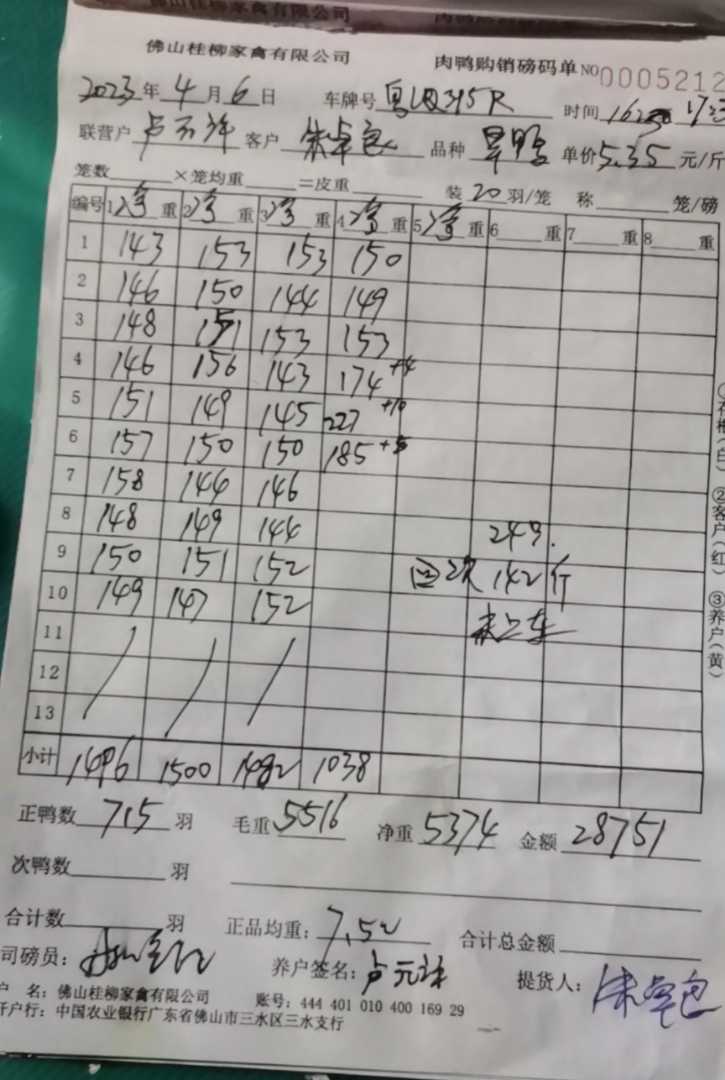 佛山桂柳家禽有限公司 肉鸭购销磅码单 NO 0005212
2023年4月6日 车牌号 粤 315R 时间
联营户 卢元 客户 朱卓包 品种 单价5.35元/斤
笼数 ×笼均重 =皮重 装20羽/笼 称 笼/磅
编号 1净重 2净重 3净重 4净重 5净重 6 重 7 重 8 重
1 143 153 153 150
2 146 150 144 149
3 148 151 153 153
4 146 156 143 174 +14
5 151 149 145 227 +10
6 157 150 150 185 +5
7 158 144 146
8 148 149 144 249.
9 150 151 152 142斤
10 149 147 152 未上车
11
12
13
小计 1496 1500 1482 1038
正鸭数 715 羽 毛重 5516 净重 5374 金额 28751
次鸭数 羽
合计数 羽 正品均重: 7.52 合计总金额
司磅员: 养户签名: 卢元 提货人: 朱卓包
户 名: 佛山桂柳家禽有限公司 账号: 444 401 010 400 169 29
开户行: 中国农业银行广东省佛山市三水区三水支行
②客户(红) ③养户(黄)